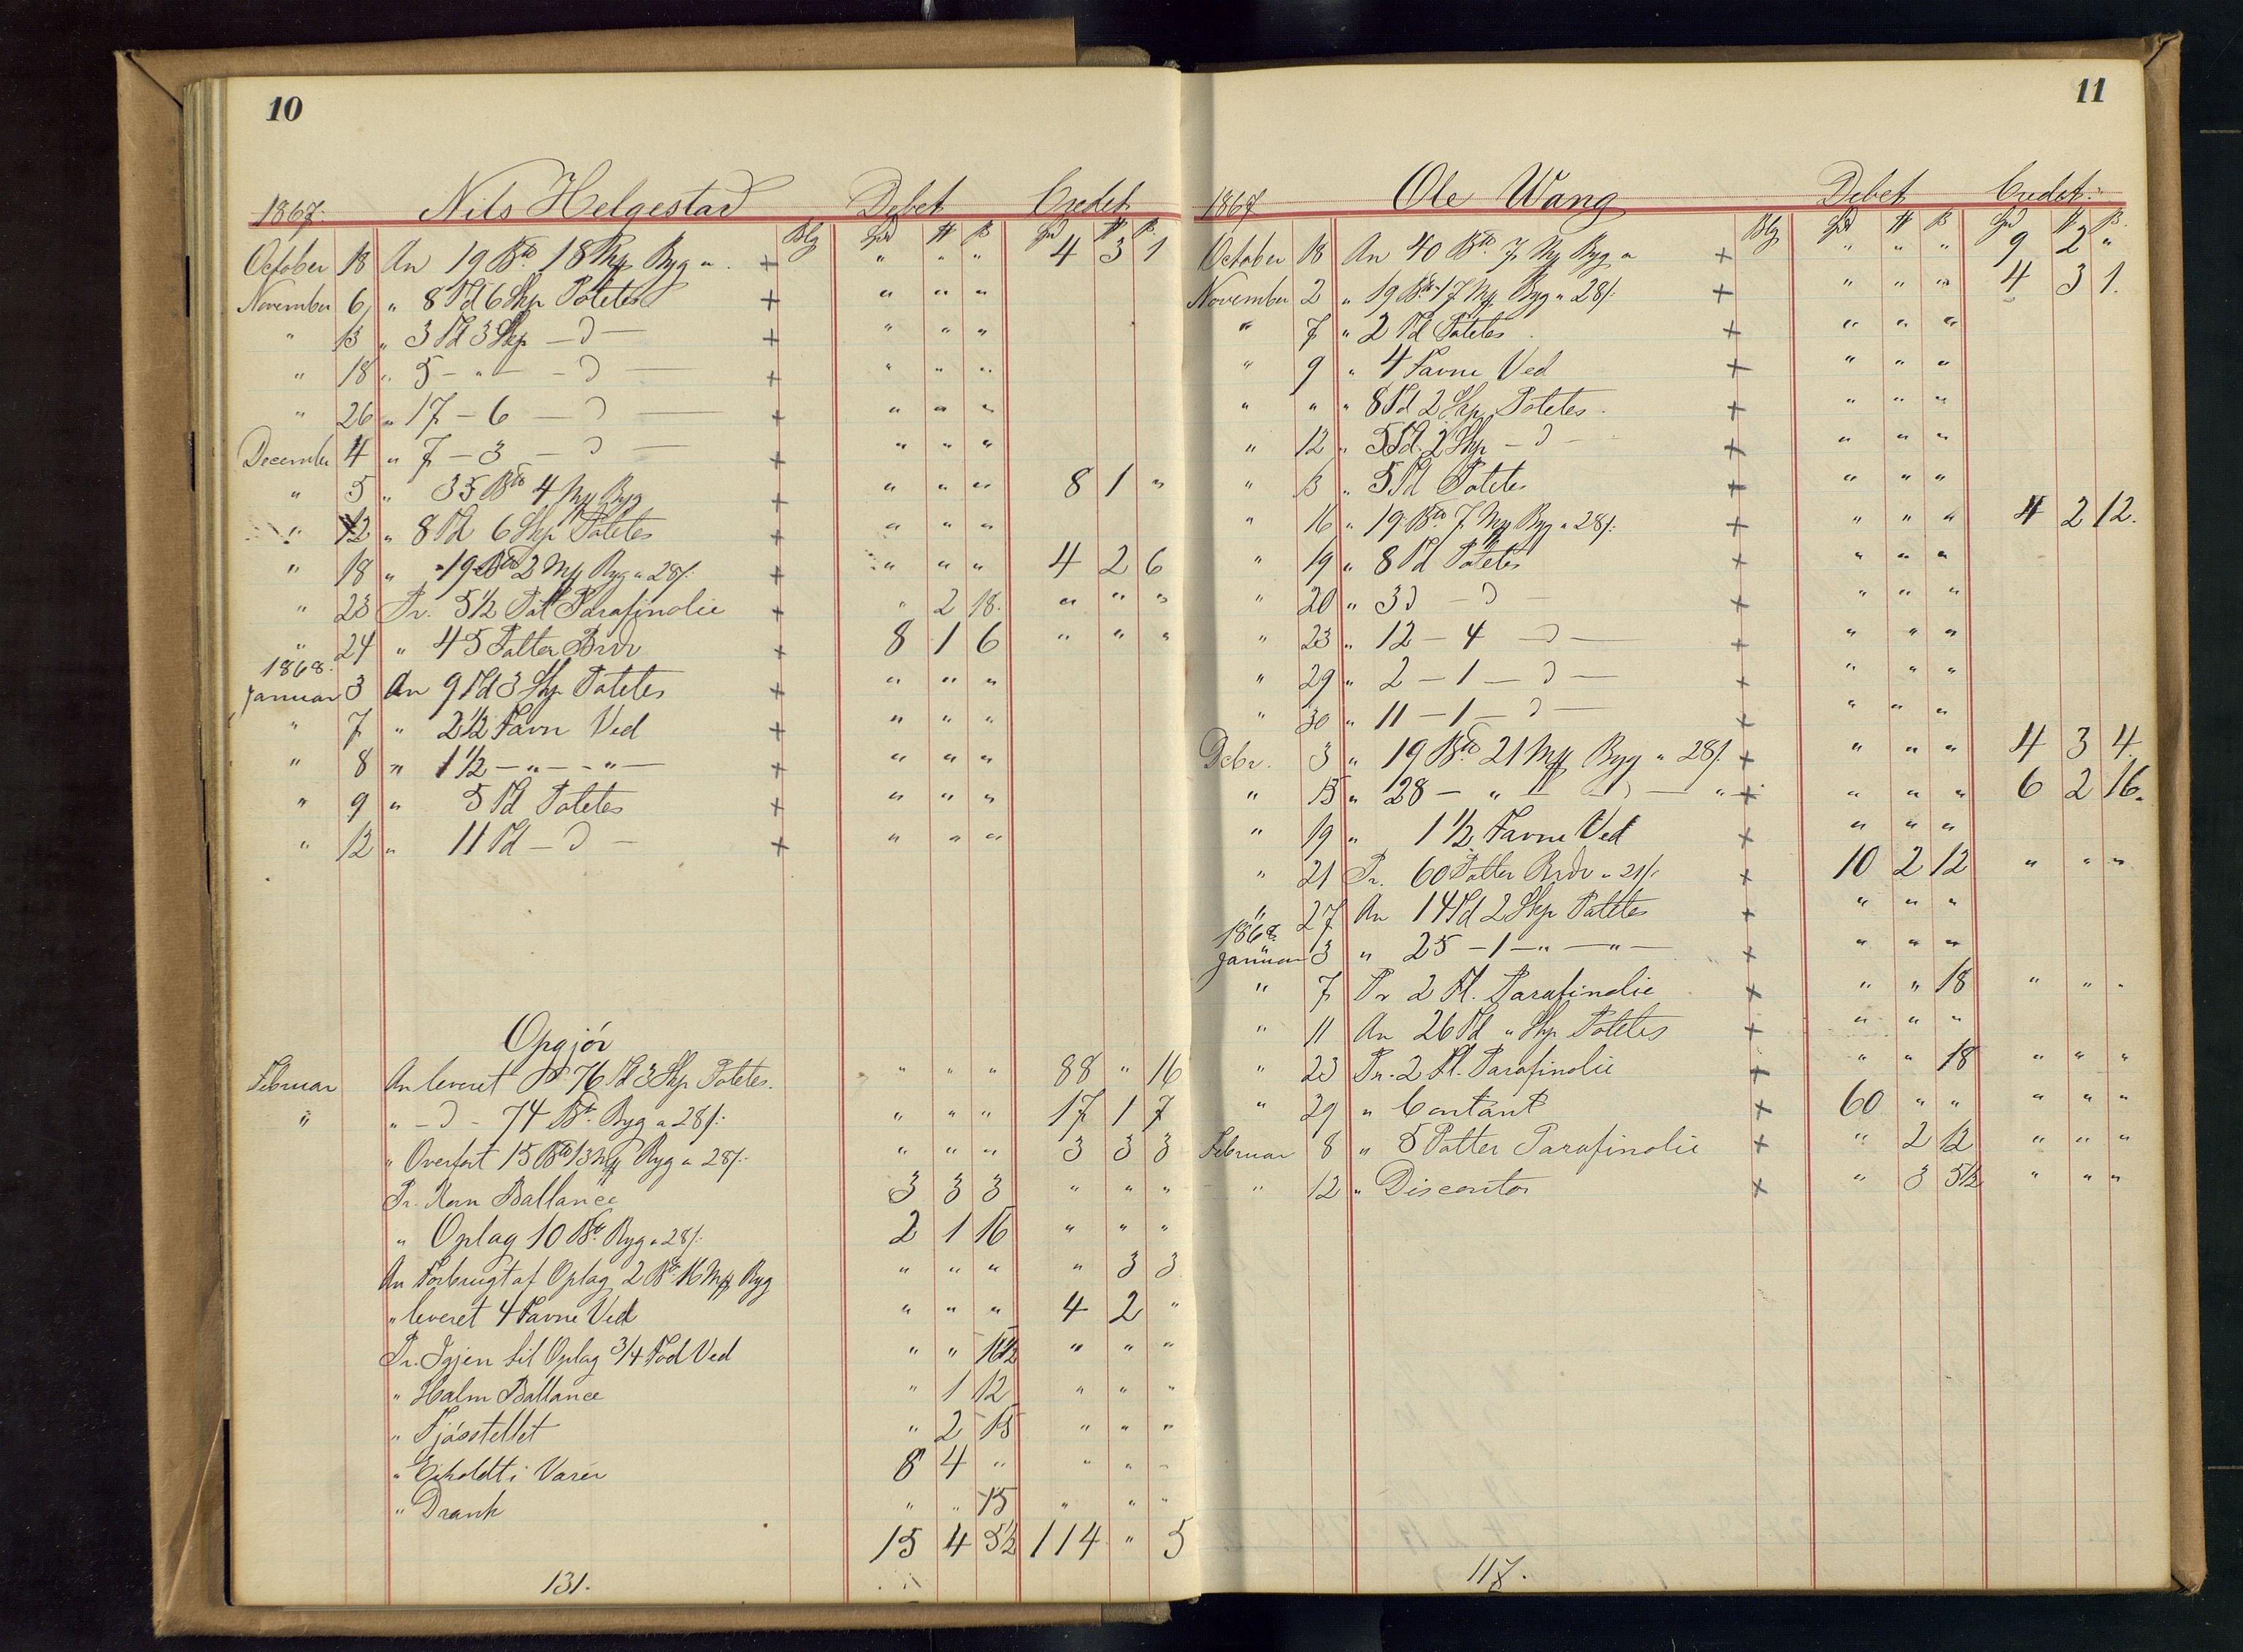 10
1867. Nils Helgestad Debet Credet
Blg Spd # ß Spd # ß
October 18 An 19 Btd 18 Mk Byg " + " " " 4 3 1
November 6 " 8 Td 6 Skp Potetes + " " "
" 13 " 3 Td 3 Skp — D — + " " "
" 18 " 5 - " - - D — + " " "
" 26 " 17 - 6 — D — + " " "
December 4 " 7 - 3 — D — + " " "
" 5 " 35 Btd 4 Mk Byg + " " " 8 1 "
" 12 " 8 Td 6 Skp Potetes + " " "
" 18 " 19 Btd 2 Mk Byg a 28/: + " " " 4 2 6
" 23 Pr. 5½ Pot Parafinolie + " 2 18. " " "
" 24 " 45 Potter Brdv + 8 1 6 " " "
1868.
Januar 3 An 9 Td 3 Skp Potetes + " " "
" 7 " 2½ Favn Ved + " " "
" 8 " 1½ — " — " — + " " "
" 9 " 5 Td Potetes + " " "
" 12 " 11 Td — D — + " " "
Opgjör
Februar An leveret 76 Td 3 Skp Potetes. " " " 88 " 16
" " — D - 74 Bt. Byg a 28/: " " " 17 1 7
" Overfört 15 Btd 13 Mk Byg a 28/: " " " 3 3 3
Pr. Korn Ballance 3 3 3 " " "
" Oplag 10 Bt. Byg a 28/: 2 1 16 " " "
An Forbrugt af Oplag 2 Bt. 16 Mk Byg " " " " 3 3
" leveret 4 Favne Ved " " " 4 2 "
Pr. Igjen til Oplag 3/4 Fod Ved " " 16½ " " "
" Halm Ballance " 1 12 " " "
" Fjösstellet " 2 15 " " "
" Erholdt i Varer 8 4 " " " "
" Drank " " 15 " " "
15 4 5½ 114 " 5
131.
11
1867 Ole Wang Debet Credet:
Blg Spd # ß Spd # ß
October 18 An 40 Btd 7 Mk Byg a + " " " 9 2 "
November 2 " 19 Bt. 17 Mk Byg a 28/: + " " " 4 3 1.
" 7 " 2 Td Potetes + " " "
" 9 " 4 Favne Ved + " " "
" " " 8 Td 2 Skp Potetes. + " " "
" 12 " 5 Td. 2 Skp — D - + " " "
" 13 " 5 Td Potetes + " " "
" 16 " 19 Btd 7 Mk Byg a 28/: + " " " 4 2 12.
" 19 " 8 Td Potetes + " " "
" 20 " 3 D — D — + " " "
" 23 " 12 — 4 — D — + " " "
" 29 " 2 — 1 — D — + " " "
" 30 " 11 — 1 — D — + " " "
Debr. 3 " 19 Btd 21 Mk Byg a 28/. + " " " 4 3 4
" 15 " 28 — " — D — " + " " " 6 2 16.
" 19 " 1½ Favne Ved + " " "
" 21 Pr. 60 Potter Brdv a 21/: + 10 2 12 " " "
" 27 An 14 Td 2 Skp Potetes + " " "
1868.
Januar 3 " 25 — 1 — " — " — + " " "
" 7 Pr 2 Fl. Parafinolie + " " 18 " " "
" 11 An 26 Td " Skp Potetes + " " "
" 23 Pr. 2 Fl. Parafinolie + " " 18 " " "
" 29 " Contant + 60 " " " " "
Februar 8 " 5 Potter Parafinolie + " 2 12 " " "
" 12 " Disconto + " 3 5½ " " "
117.